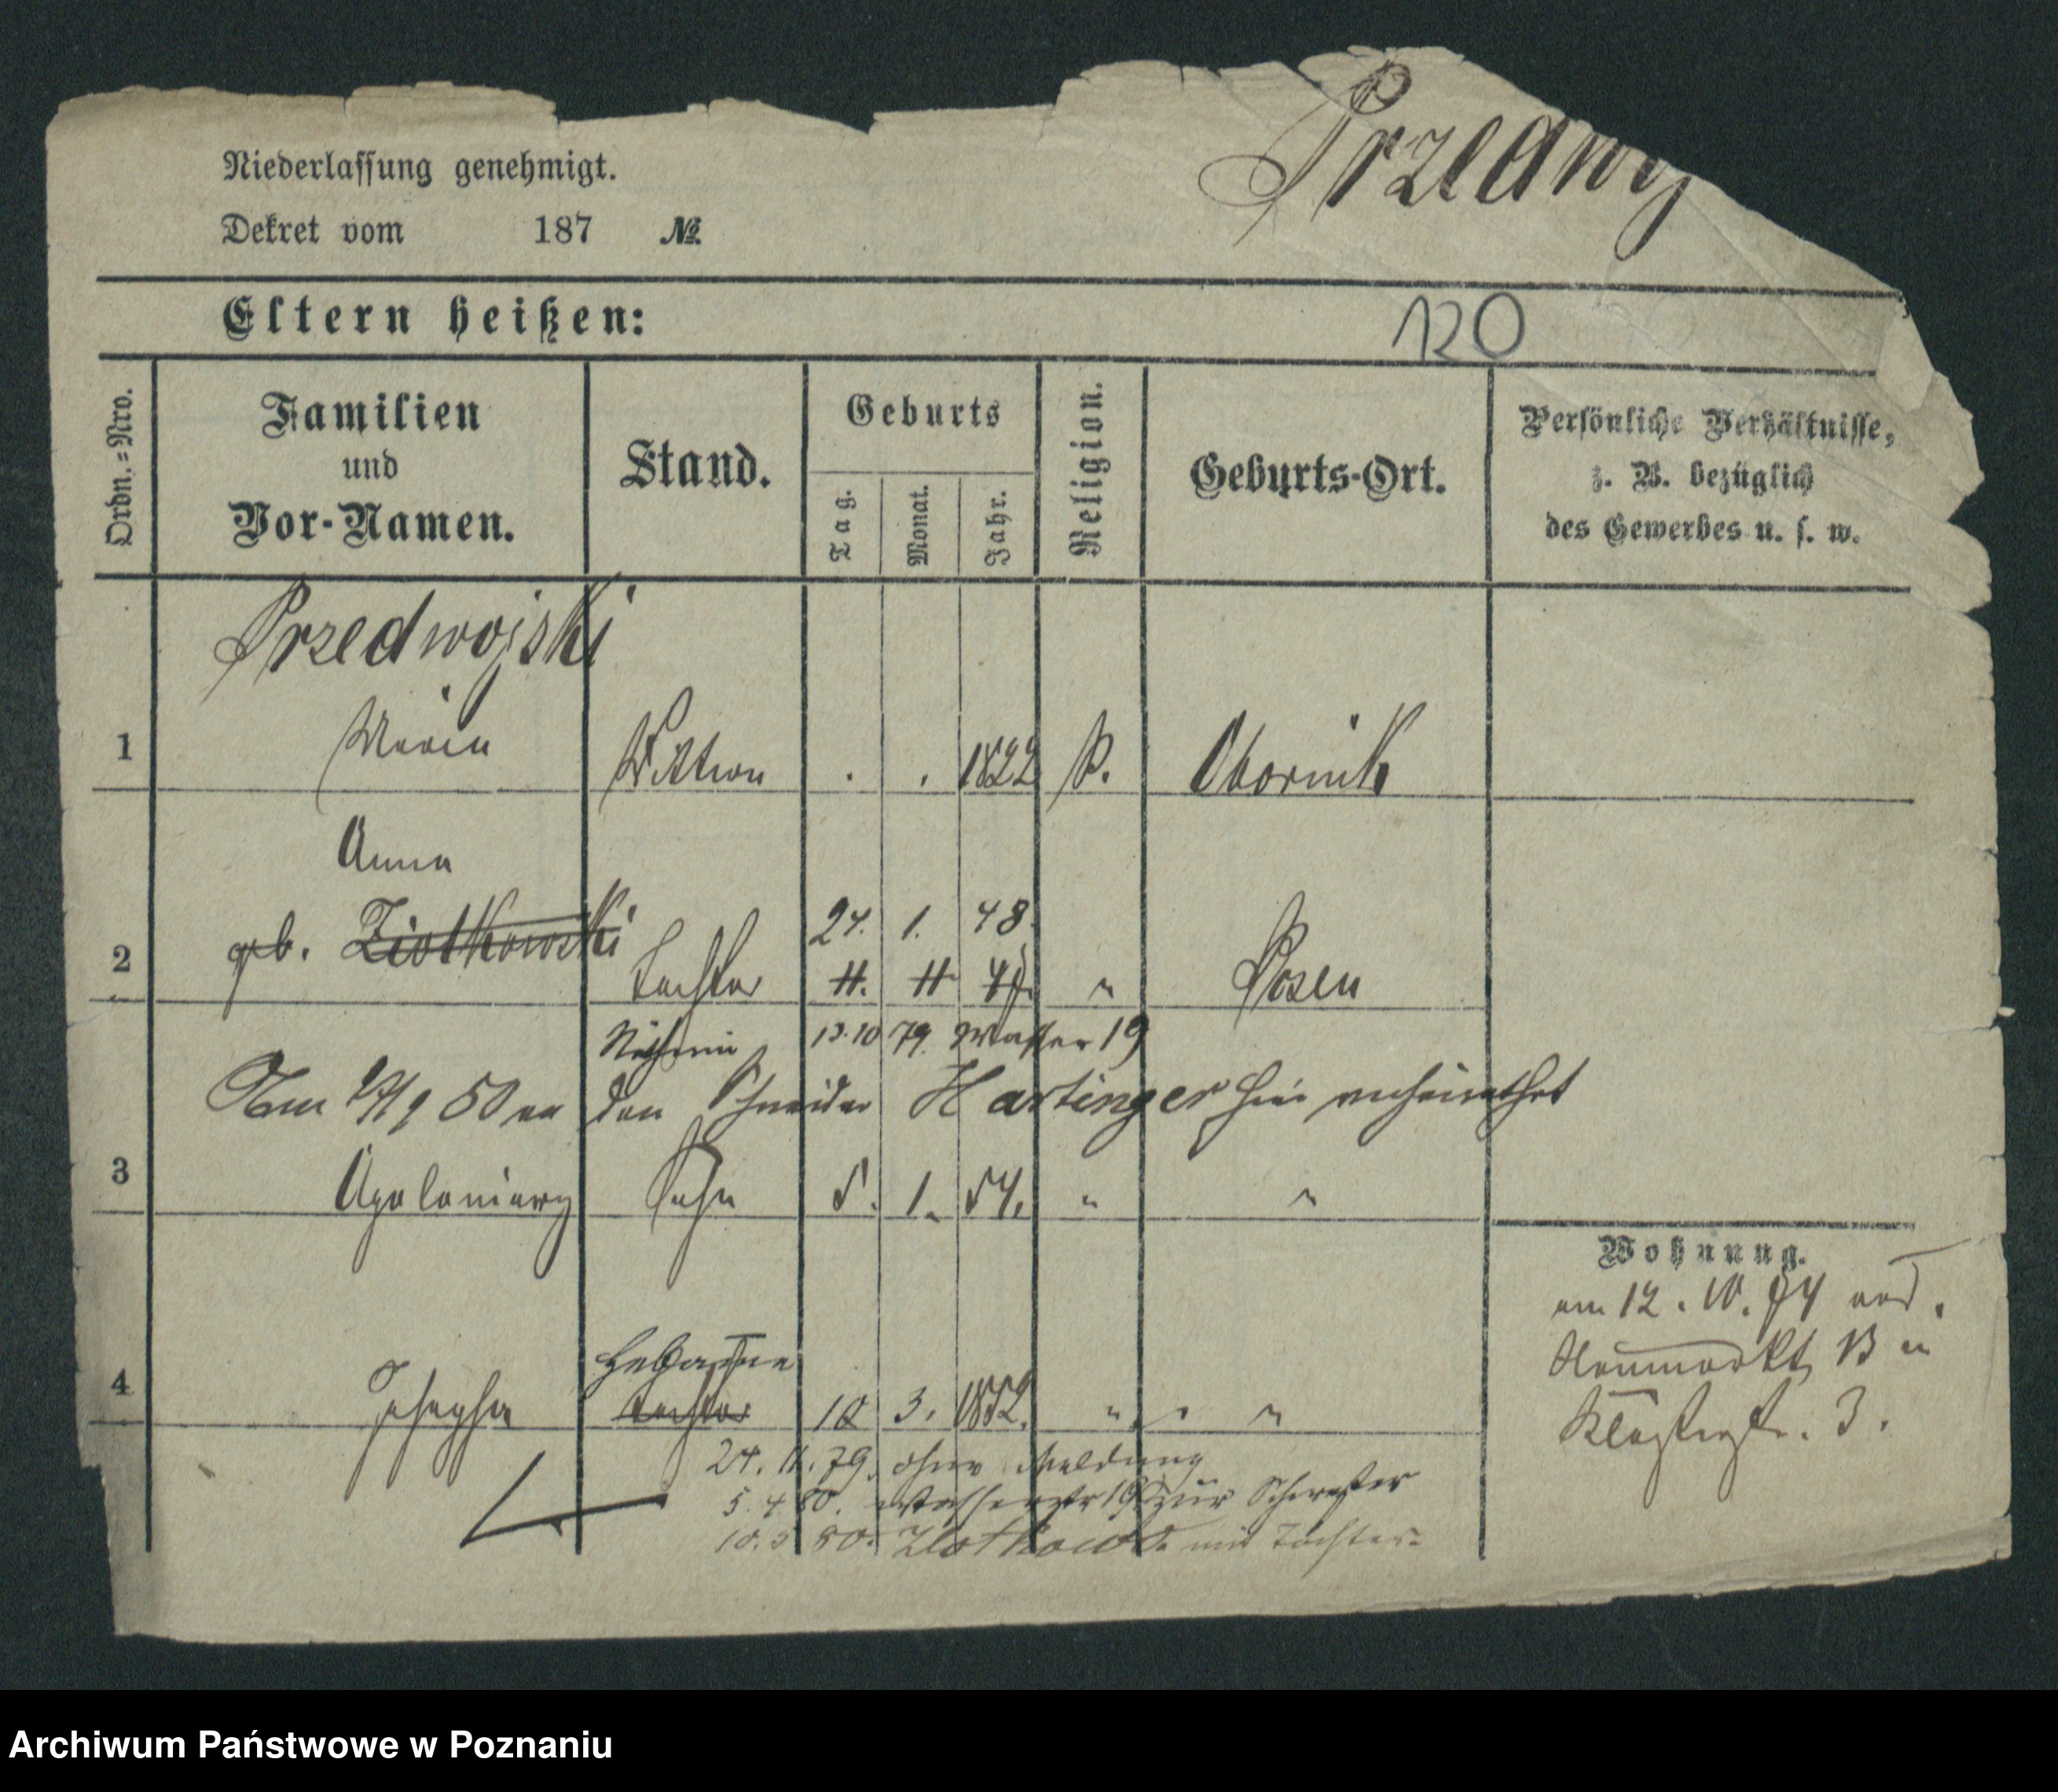 Przedwoj
Niederlassung genehmigt.
Dekret vom 187 №
Eltern heißen:
120
Ordn.=Nro.
Familien
und
Vor-Namen.
Stand.
Geburts
Tag.
Monat.
Jahr.
Religion.
Geburts-Ort.
Persönliche Verhältnisse,
z. B. bezüglich
des Gewerbes u. s. w.
Przedwojski
1 Maria Wittwe . . 1822 K. Obornik
Anna
geb. Ziolkowski 24. 1. 48.
2 Tochter 11. 11 47. " Posen
Näherin 13.10 79. Wasser 19
Am 29/9 80 an den Schneider Hartinger hier verheirathet
3 Apoloniary Sohn 5. 1. 54. " "
Wohnung.
am 12. 10. 74 von
Neumarkt 13 in
Klosterstr. 3.
Hebamme
4 Josepha Tochter 10 3. 1852. " "
24. 11. 79. ohne Meldung
5. 4 80. Wasserstr 19 zur Schwester
10. 5 80. Zlotkowo mit Tochter
Archiwum Państwowe w Poznaniu